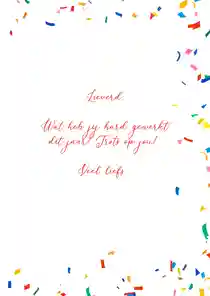 Lieverd,
Wat heb jij hard gewerkt
dit jaar! Trots op jou!
Veel liefs